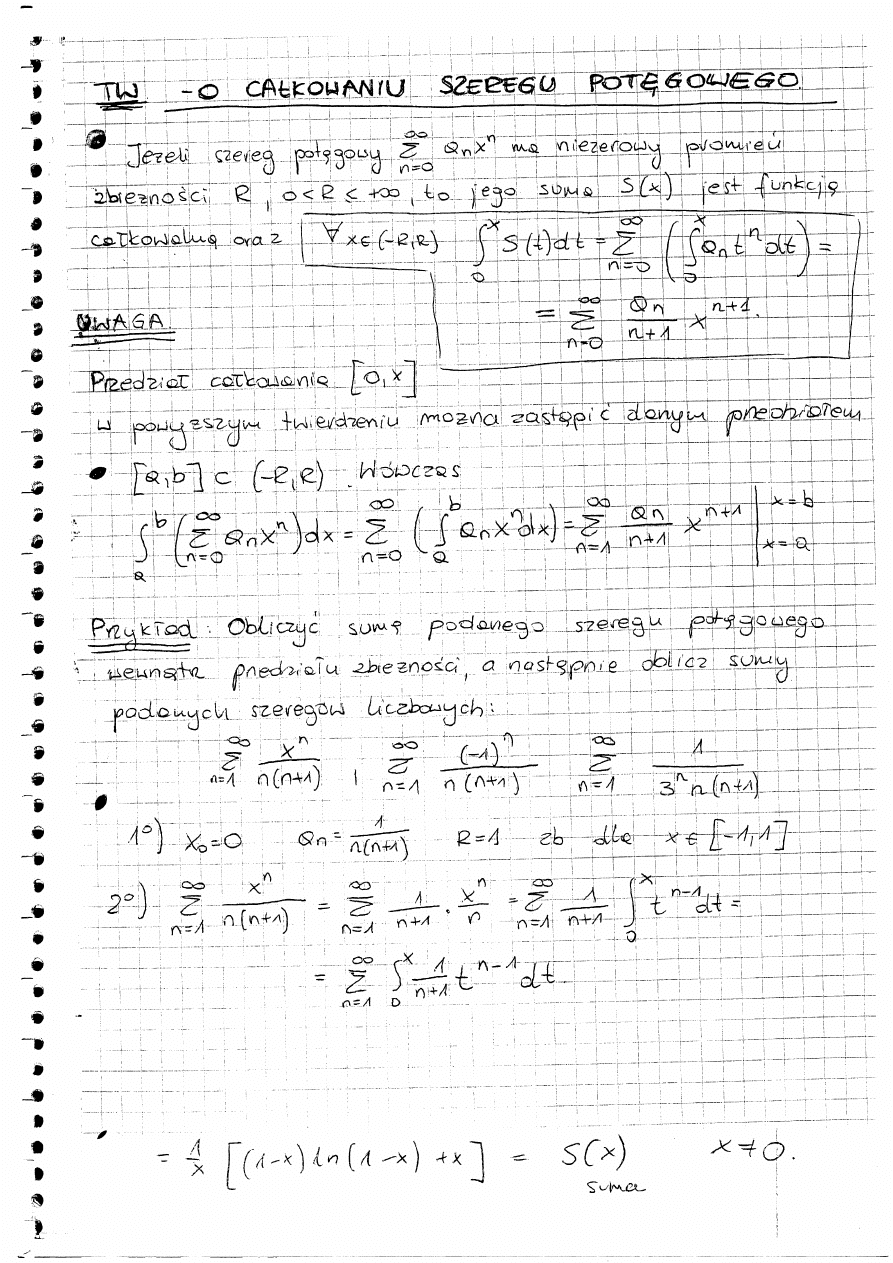 TW - O CAŁKOWANIU SZEREGU POTĘGOWEGO
• Jeżeli szereg potęgowy ∞∑n=0 aₙxⁿ ma niezerowy promień
zbieżności R, 0<R≤+∞, to jego suma S(x) jest funkcją
całkowalną oraz ∀ x∈(-R,R) ∫₀ˣ S(t)dt = ∞∑n=0 (∫₀ˣ aₙtⁿdt) =
= ∞∑n=0 aₙ/(n+1) xⁿ⁺¹.
UWAGA
Przedział całkowania [0,x]
w powyższym twierdzeniu można zastąpić danym przedziałem
• [a,b] ⊂ (-R,R). Wówczas
∫ₐᵇ (∞∑n=0 aₙxⁿ)dx = ∞∑n=0 (∫ₐᵇ aₙxⁿdx) = ∞∑n=1 aₙ/(n+1) xⁿ⁺¹ | x=b x=a
Przykład: Obliczyć sumę podanego szeregu potęgowego
wewnątrz przedziału zbieżności, a następnie oblicz sumy
podanych szeregów liczbowych:
∞∑n=1 xⁿ/(n(n+1)), ∞∑n=1 (-1)ⁿ/(n(n+1)) ∞∑n=1 1/(3ⁿn(n+1))
1°) x₀=0 aₙ=1/(n(n+1)) R=1 zb dla x∈[-1,1]
2°) ∞∑n=1 xⁿ/(n(n+1)) = ∞∑n=1 1/(n+1) · xⁿ/n = ∞∑n=1 1/(n+1) ∫₀ˣ tⁿ⁻¹dt =
= ∞∑n=1 ∫₀ˣ 1/(n+1) tⁿ⁻¹dt
= 1/x [(1-x)ln(1-x)+x] = S(x) x≠0.
suma